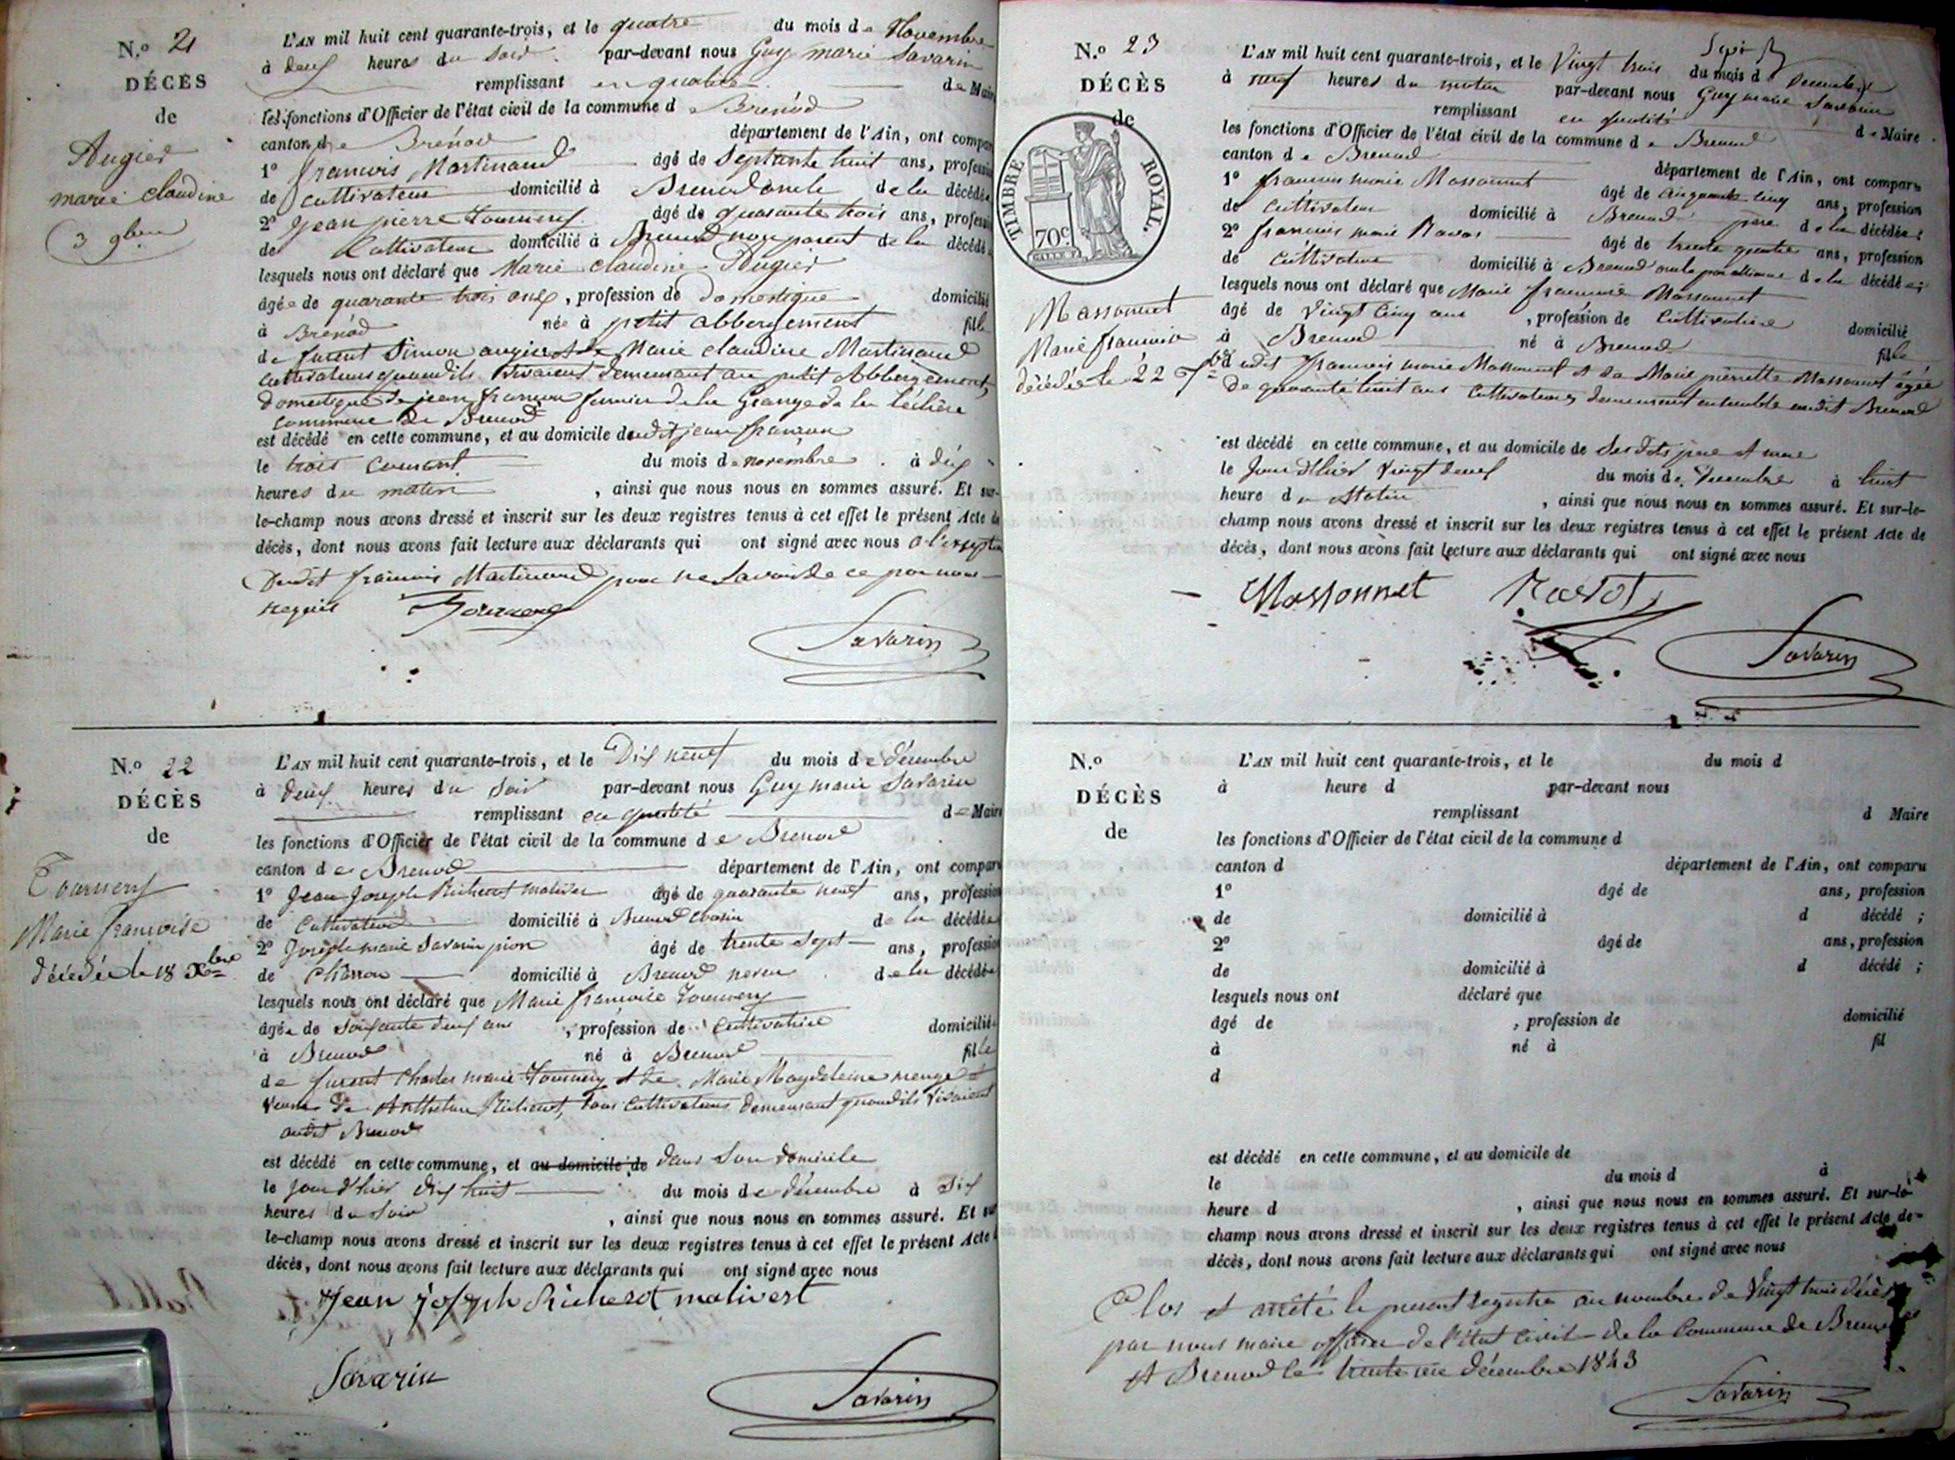 N.o 21
DÉCÈS
de
Augier
marie claudine
3 9bre
L'AN mil huit cent quarante-trois, et le quatre du mois de Novembre
à deux heures du soir par-devant nous Guy marie Savarin
remplissant en qualité de Maire
les fonctions d'Officier de l'état civil de la commune de Brenod
canton de Brénod département de l'Ain, ont comparu
1o francois Martinand âgé de Septante huit ans, profession
de cultivateur domicilié à Brenod oncle de la décédée
2o Jean pierre Tournery âgé de quarante trois ans, profession
de Cultivateur domicilié à Brenod non parent de la décédée
lesquels nous ont déclaré que Marie claudine Augier
âgée de quarante trois ans, profession de domestique domicilié
à Brenod née à petit abbergement fille
de furent Simon augier et de Marie claudine Martinand
cultivateurs quand ils vivaient demeurant au petit Abbergement,
domestique de jean francon fermier de la Grange de la Léchère
commune de Brenod
est décédé en cette commune, et au domicile dudit jean francon
le trois courant du mois de novembre à dix
heures du matin, ainsi que nous nous en sommes assuré. Et sur-
le-champ nous avons dressé et inscrit sur les deux registres tenus à cet effet le présent Acte de
décès, dont nous avons fait lecture aux déclarants qui ont signé avec nous à l'exception
dudit francois Martinand pour ne savoir de ce par nous
requis Tournery
Savarin
N.o 22
DÉCÈS
de
Tournery
Marie francoise
décédée le 18 Xbre
L'AN mil huit cent quarante-trois, et le Dix neuf du mois de décembre
à deux heures du soir par-devant nous Guy marie Savarin
remplissant en qualité de Maire
les fonctions d'Officier de l'état civil de la commune de Brenod
canton de Brenod département de l'Ain, ont comparu
1o Jean Joseph Richerot malivert âgé de quarante neuf ans, profession
de Cultivateur domicilié à Brenod cousin de la décédée
2o Joseph marie Savarin pion âgé de trente sept ans, profession
de Charron domicilié à Brenod neveu de la décédée
lesquels nous ont déclaré que Marie francoise Tournery
âgée de soixante deux ans, profession de Cultivatrice domiciliée
à Brenod né à Brenod fille
de furent Charles marie Tournery et de Marie Magdeleine
veuve de Anthelme Richerot, tous cultivateurs demeurant quand ils vivaient
audit Brenod
est décédé en cette commune, et au domicile de dans son domicile
le jour d'hier dix huit du mois de décembre à dix
heures du soir, ainsi que nous nous en sommes assuré. Et sur
le-champ nous avons dressé et inscrit sur les deux registres tenus à cet effet le présent Acte
décès, dont nous avons fait lecture aux déclarants qui ont signé avec nous
Jean joseph Richerot malivert
Savarin
Savarin
N.o 23
DÉCÈS
de
TIMBRE ROYAL.
70c
Massonnet
Marie francoise
décédée le 22 Xbre
L'AN mil huit cent quarante-trois, et le Vingt trois du mois de Decembre
à neuf heures du matin par-devant nous Guy marie Savarin
remplissant en qualité de Maire
les fonctions d'Officier de l'état civil de la commune de Brenod
canton de Brenod département de l'Ain, ont comparu
1o francois marie Massonnet âgé de cinquante cinq ans, profession
de Cultivateur domicilié à Brenod père de la décédée;
2o francois marie Ravot âgé de trente quatre ans, profession
de Cultivateur domicilié à Brenod oncle par alliance de la décédée;
lesquels nous ont déclaré que Marie francoise Massonnet
âgé de Vingt Cinq ans, profession de Cultivatrice domicilié
à Brenod né à Brenod fille
dudit francois marie Massonnet et de Marie pierrette Massonnet âgée
de quarante huit ans cultivateurs demeurant ensemble audit Brenod
est décédé en cette commune, et au domicile de ses dits père et mère
le Jour d'hier Vingt deux du mois de Decembre à huit
heure du Matin, ainsi que nous nous en sommes assuré. Et sur-le-
champ nous avons dressé et inscrit sur les deux registres tenus à cet effet le présent Acte de
décès, dont nous avons fait lecture aux déclarants qui ont signé avec nous
Massonnet Ravot
Savarin
N.o
DÉCÈS
de
L'AN mil huit cent quarante-trois, et le du mois d
à heure d par-devant nous
remplissant d Maire
les fonctions d'Officier de l'état civil de la commune d
canton d département de l'Ain, ont comparu
1o âgé de ans, profession
de domicilié à d décédé;
2o âgé de ans, profession
de domicilié à d décédé;
lesquels nous ont déclaré que
âgé de, profession de domicilié
à né à fil
d
est décédé en cette commune, et au domicile de
le du mois d à
heure d, ainsi que nous nous en sommes assuré. Et sur-le-
champ nous avons dressé et inscrit sur les deux registres tenus à cet effet le présent Acte de
décès, dont nous avons fait lecture aux déclarants qui ont signé avec nous
Clos et arrêté le present registre au nombre de Vingt trois décès
par nous maire officier de l'état civil de la Commune de Brenod
A Brenod le trente un décembre 1843
Savarin